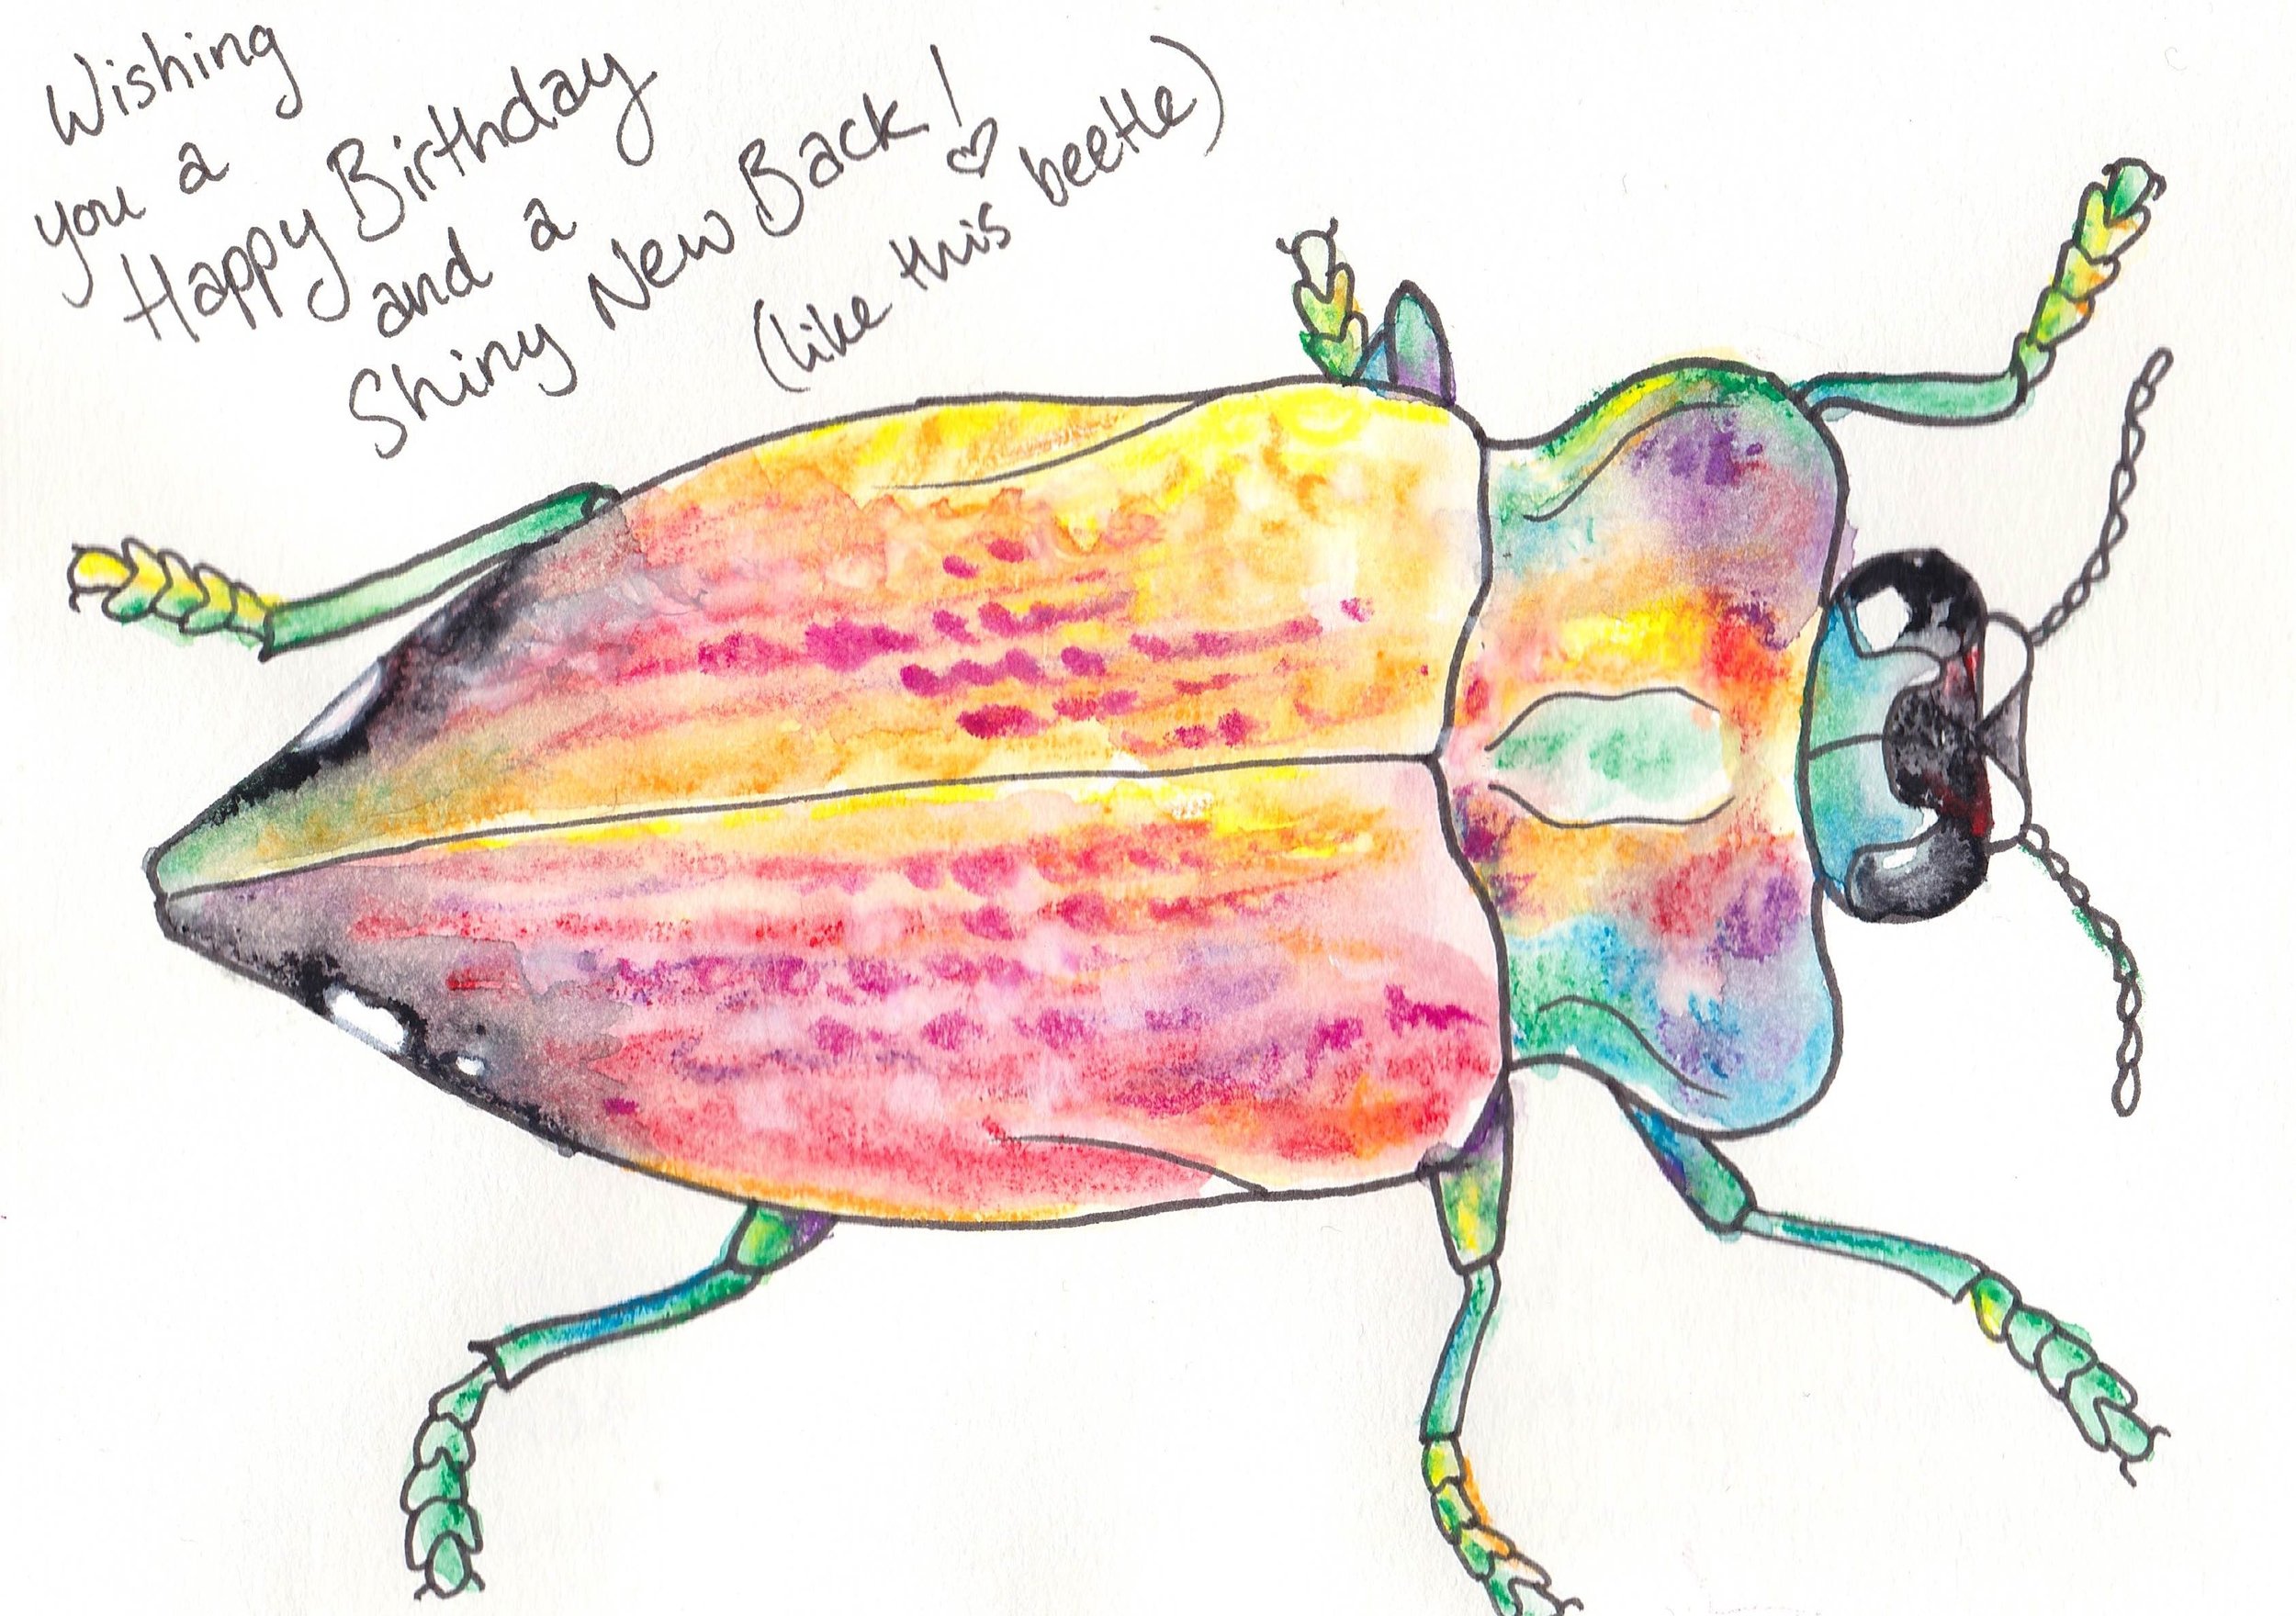 Wishing
you a
Happy Birthday
and a
Shiny New Back!
(like this beetle)